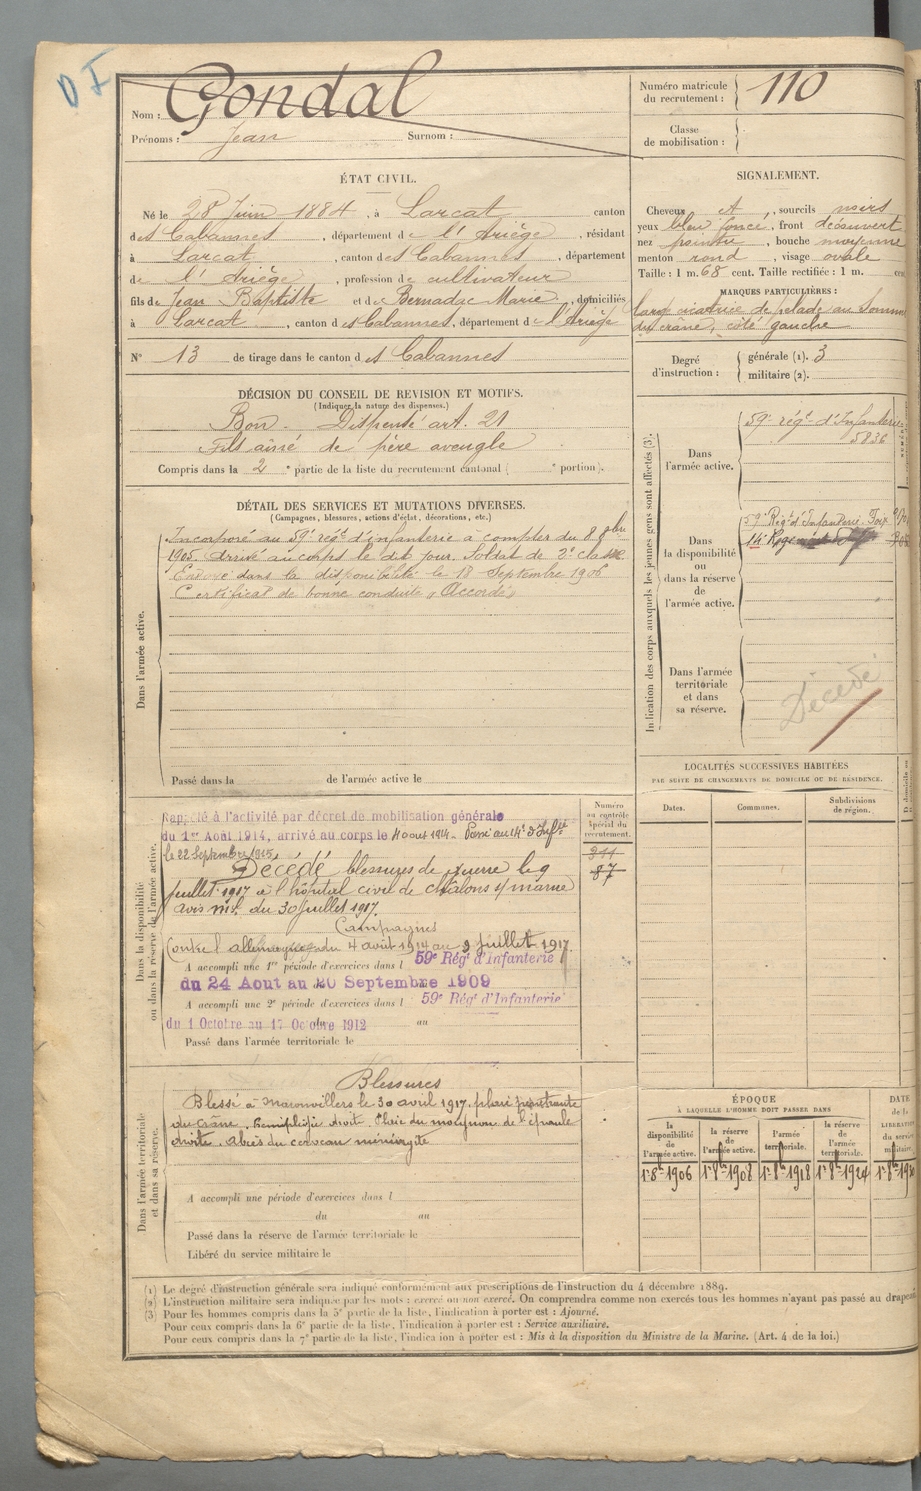 D I
Nom : Gondal
Prénoms : Jean Surnom :
Numéro matricule du recrutement : 110
Classe de mobilisation :
ÉTAT CIVIL.
Né le 28 Juin 1884, à Larcat canton
des Cabannes, département de l'Ariège, résidant
à Larcat, canton des Cabannes, département
de l'Ariège, profession de cultivateur
fils de Jean Baptiste et de Bernadac Marie, domiciliés
à Larcat, canton des Cabannes, département de l'Ariège
N° 13 de tirage dans le canton des Cabannes
SIGNALEMENT.
Cheveux et, sourcils noirs
yeux bleu foncé, front découvert
nez pointu, bouche moyenne
menton rond, visage ovale
Taille : 1 m. 68 cent. Taille rectifiée : 1 m. cent
MARQUES PARTICULIÈRES :
large cicatrice de pelade au Sommet
du crâne, côté gauche
Degré d'instruction : générale (1). 3
militaire (2).
DÉCISION DU CONSEIL DE REVISION ET MOTIFS.
(Indiquer la nature des dispenses.)
Bon. Dispensé art. 21
Fils aîné de père aveugle
Compris dans la 2e partie de la liste du recrutement cantonal ( e portion).
DÉTAIL DES SERVICES ET MUTATIONS DIVERSES.
(Campagnes, blessures, actions d'éclat, décorations, etc.)
Dans l'armée active.
Incorporé au 59e rég.t d'infanterie à compter du 8 8bre
1905 Arrivé au corps le dit jour. Soldat de 2e classe
Envoyé dans la disponibilité le 18 Septembre 1906
Certificat de bonne conduite "Accordé"
Passé dans la de l'armée active le
Indication des corps auxquels les jeunes gens sont affectés (3).
Dans l'armée active.
59e rég.t d'Infanterie
5836
Dans la disponibilité ou dans la réserve de l'armée active.
59e Rég.t d'Infanterie Foix
14e Régiment
Dans l'armée territoriale et dans sa réserve.
Décédé
LOCALITÉS SUCCESSIVES HABITÉES
PAR SUITE DE CHANGEMENTS DE DOMICILE OU DE RÉSIDENCE.
Dates. Communes. Subdivisions de région.
Numéro au contrôle spécial du recrutement.
311
87
Dans la disponibilité ou dans la réserve de l'armée active.
Rappelé à l'activité par décret de mobilisation générale
du 1er Août 1914, arrivé au corps le 4 août 1914. Passé au 14e d'Inf.ie
le 22 Septembre 1915.
Décédé blessures de guerre le 9
juillet 1917 à l'hôpital civil de Châlons s/ marne
avis M.el du 30 Juillet 1917.
Campagnes
Contre l'allemagne du 4 août 1914 au 9 juillet 1917
A accompli une 1re période d'exercices dans l 59e Rég.t d'Infanterie
du 24 Aout au 20 Septembre 1909
A accompli une 2e période d'exercices dans l 59e Rég.t d'Infanterie
du 1 Octobre au 17 Octobre 1912 au
Passé dans l'armée territoriale le
Dans l'armée territoriale et dans sa réserve.
Blessures
Blessé à Moronvillers le 30 avril 1917. plaie pénétrante
du crâne. hémiplégie droite. Plaie du moignon de l'épaule
droite. Abcès du cerveau méningite
A accompli une période d'exercices dans l
du au
Passé dans la réserve de l'armée territoriale le
Libéré du service militaire le
ÉPOQUE
À LAQUELLE L'HOMME DOIT PASSER DANS
la disponibilité de l'armée active.
la réserve de l'armée active.
l'armée territoriale.
la réserve de l'armée territoriale.
DATE de la LIBÉRATION du service militaire
1r 8b 1906 1r 8b 1908 1r 8b 1918 1r 8b 1924 1r 8b 1930
(1) Le degré d'instruction générale sera indiqué conformément aux prescriptions de l'instruction du 4 décembre 1889.
(2) L'instruction militaire sera indiquée par les mots : exercé ou non exercé. On comprendra comme non exercés tous les hommes n'ayant pas passé au drapeau
(3) Pour les hommes compris dans la 5e partie de la liste, l'indication à porter est : Ajourné.
Pour ceux compris dans la 6e partie de la liste, l'indication à porter est : Service auxiliaire.
Pour ceux compris dans la 7e partie de la liste, l'indication à porter est : Mis à la disposition du Ministre de la Marine. (Art. 4 de la loi.)